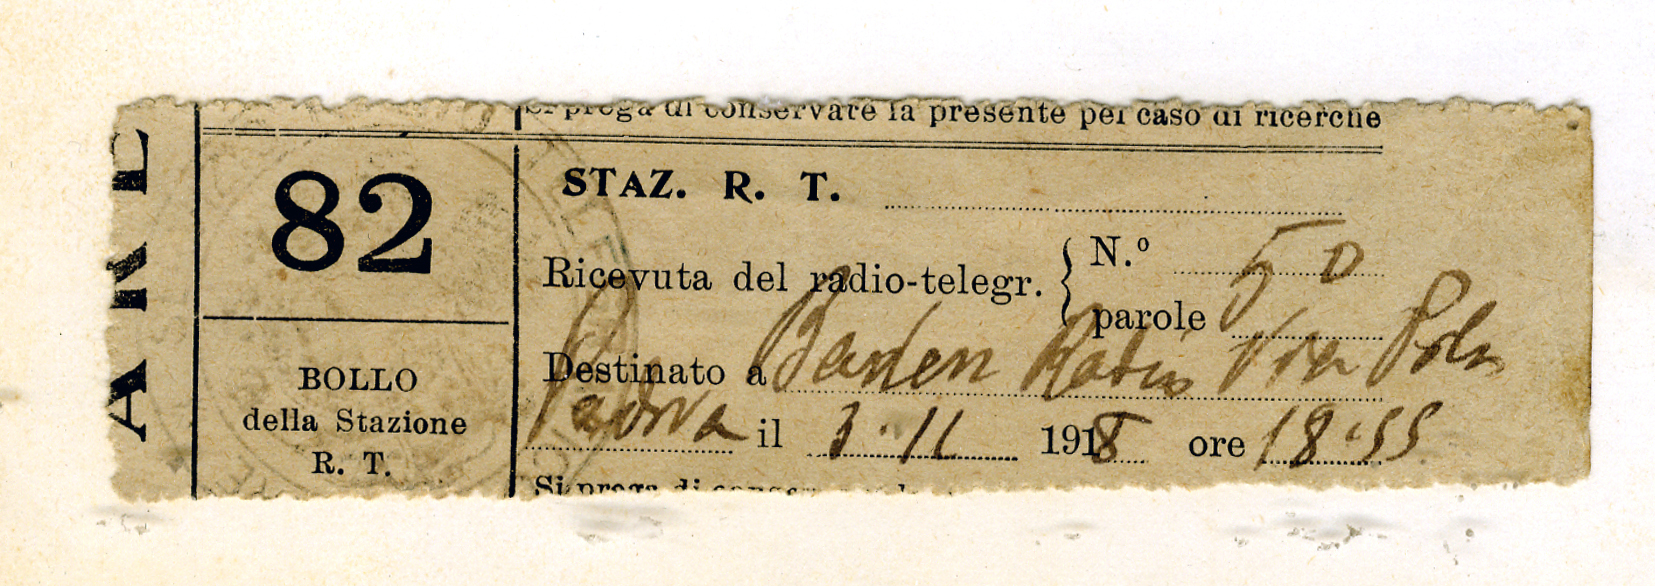 Si prega di conservare la presente per caso di ricerche
82
STAZ. R. T.
Ricevuta del radio-telegr. { N.º 50
parole
Destinato a Baden Radio Via Pola
Padova il 3·11 1918 ore 18·55
BOLLO
della Stazione
R. T.
Si prega di
ARE